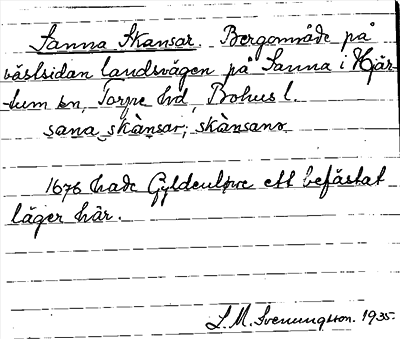 Sanna Skansar. Bergområde på
västsidan landsvägen på Sanna i Hjär-
tum sn, Torpe hd, Bohus l.
sana skànsar; skànsano
1676 hade Gyldenløve ett befästat
läger här.
S. M. Svenungsson. 1935.